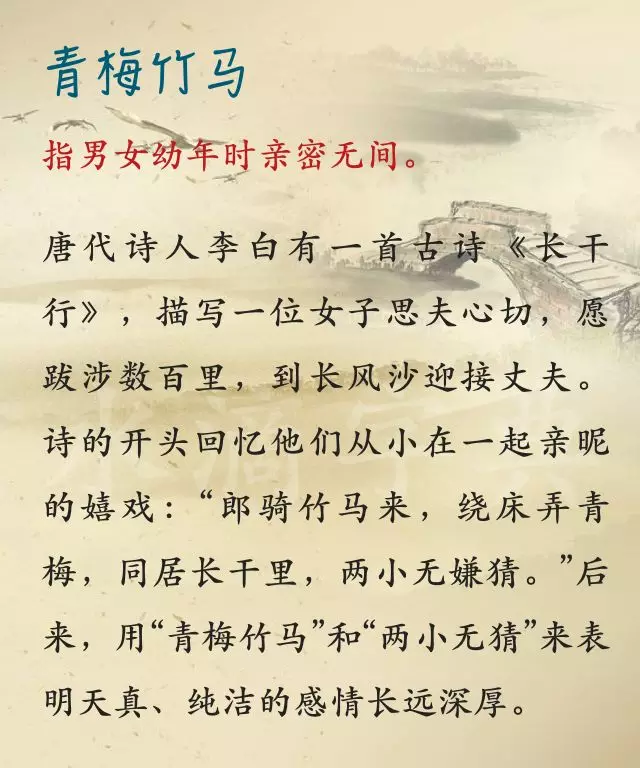 青梅竹马
指男女幼年时亲密无间。
唐代诗人李白有一首古诗《长干
行》，描写一位女子思夫心切，愿
跋涉数百里，到长风沙迎接丈夫。
诗的开头回忆他们从小在一起亲昵
的嬉戏：“郎骑竹马来，绕床弄青
梅，同居长干里，两小无嫌猜。”后
来，用“青梅竹马”和“两小无猜”来表
明天真、纯洁的感情长远深厚。